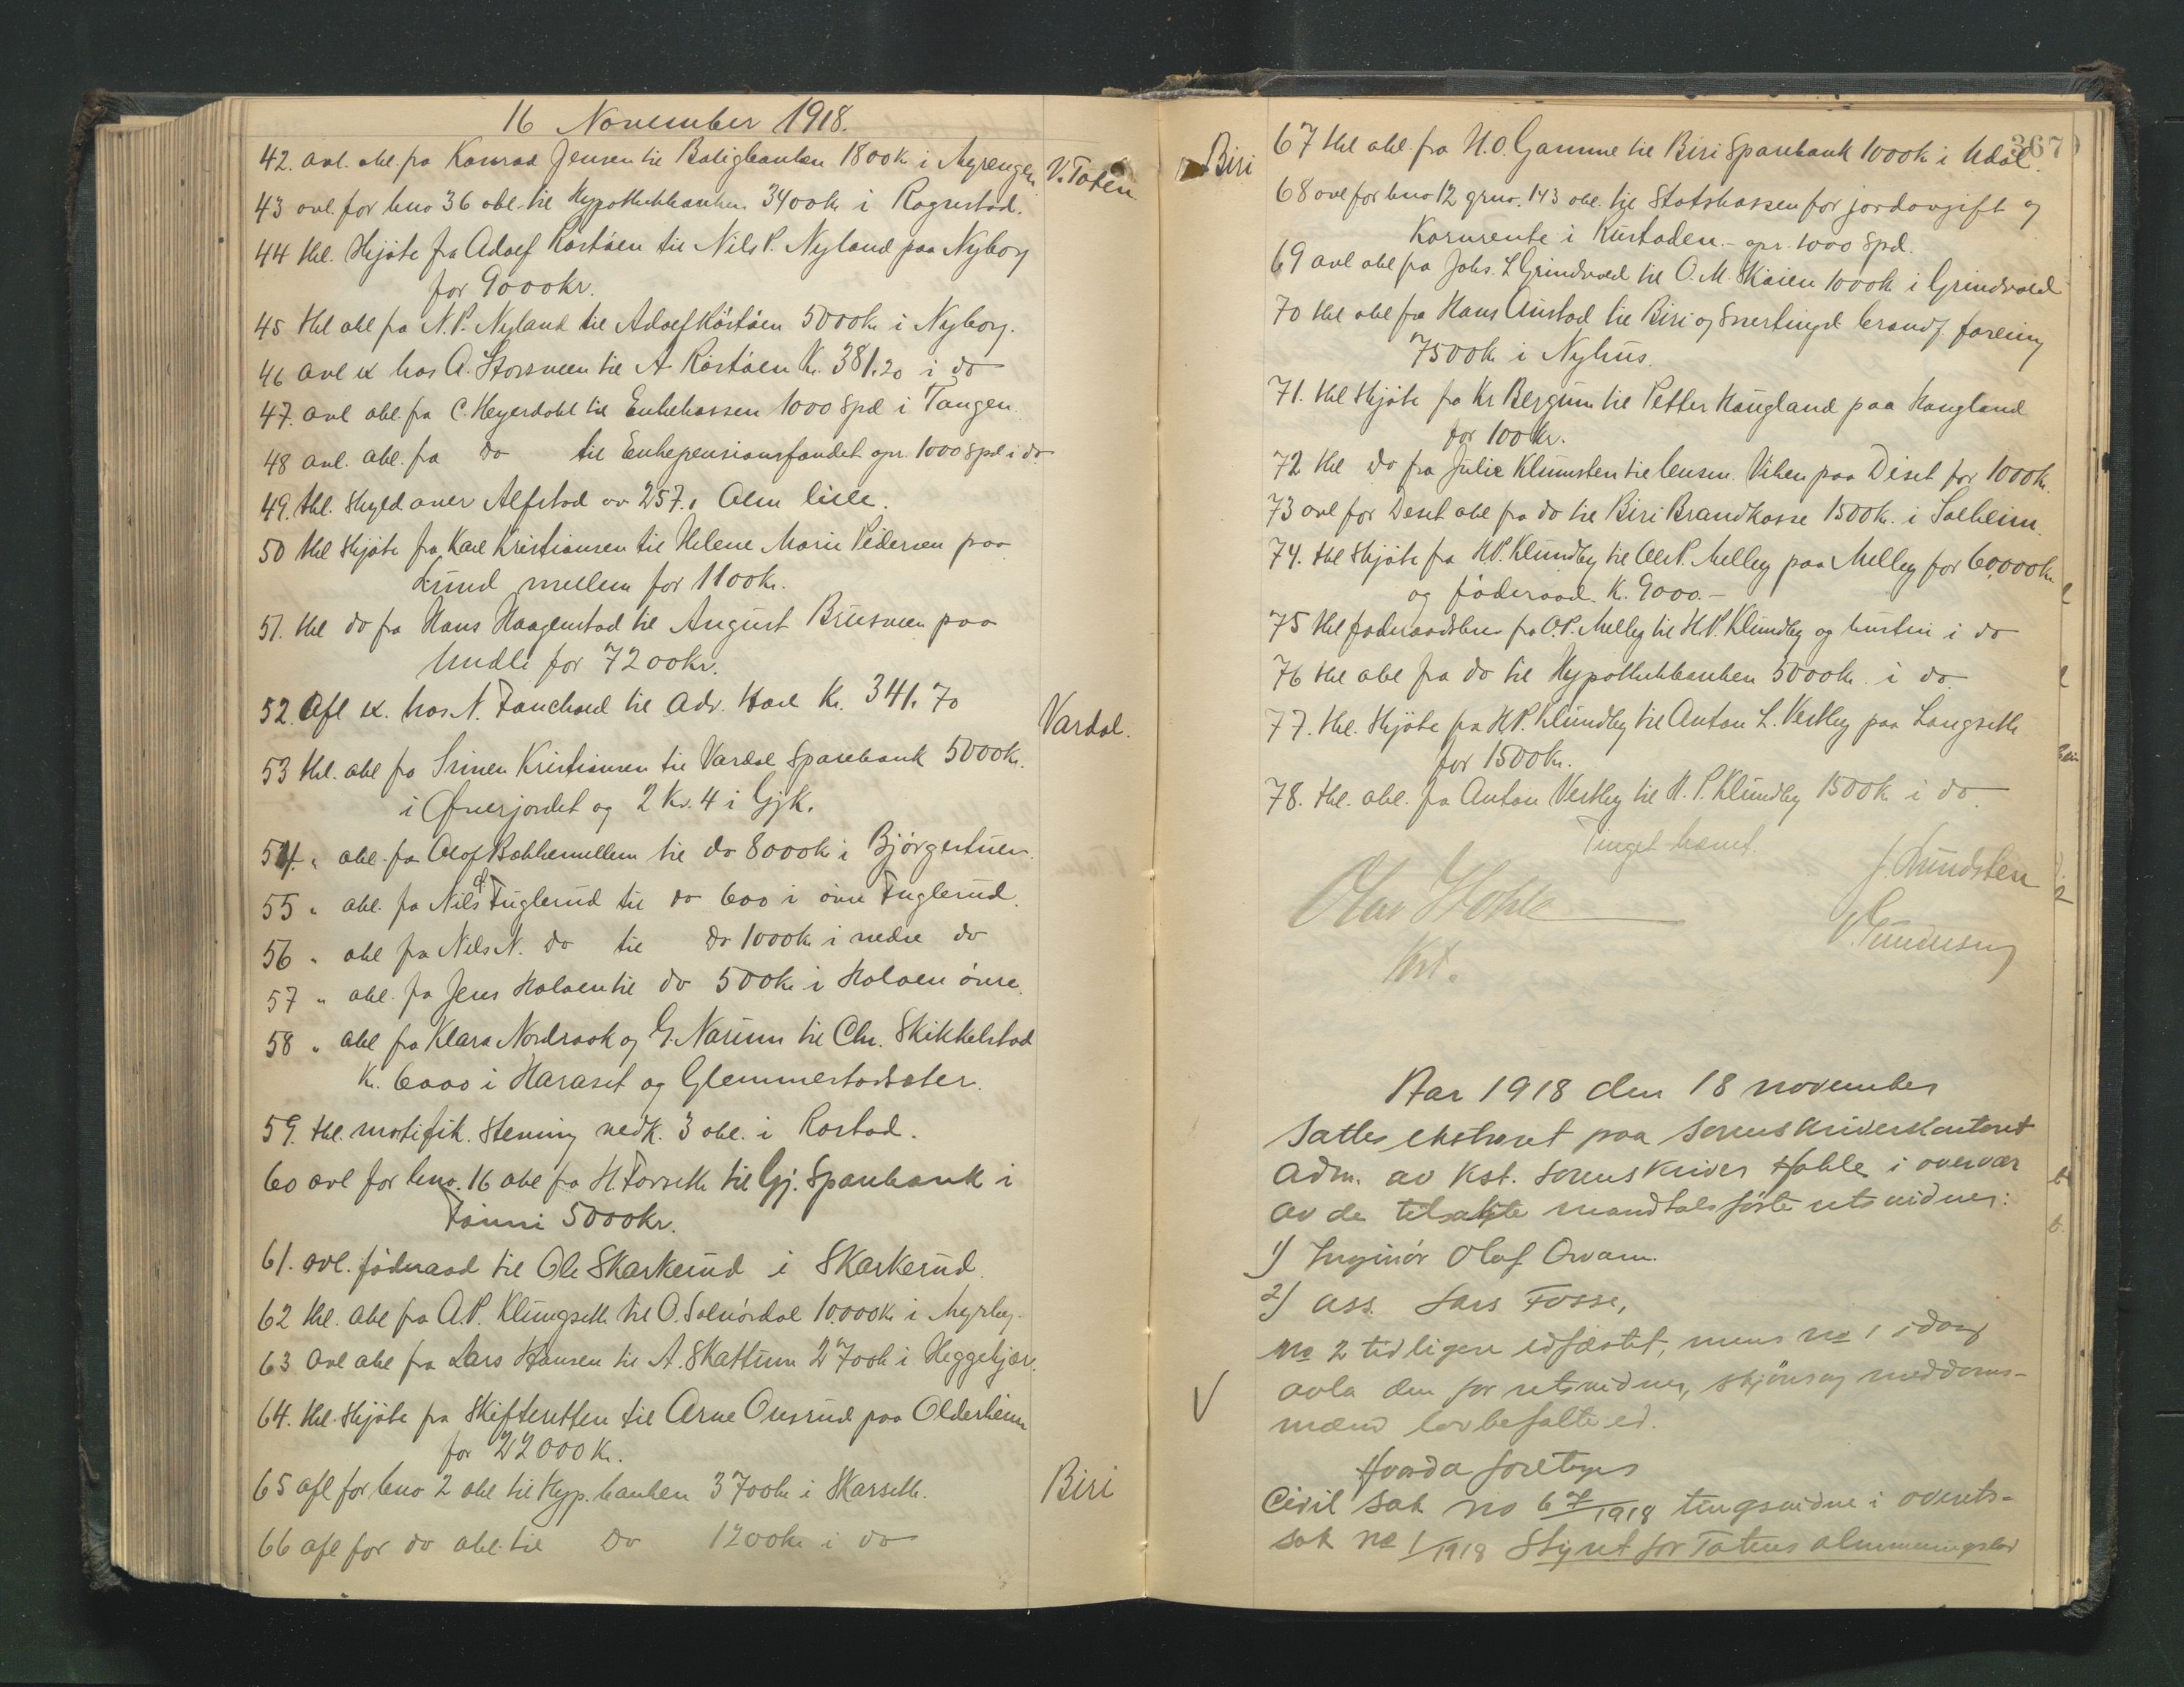 16 November 1918.
42. avl. obl. fra Konrad Jensen til Boligbanken 1800 kr i Myrengen V. Toten
43 avl. for bno 36 obl. til Hypothekbanken 3400 kr i Rognstad.
44 thl. Skjöte fra Adolf Röstöen til Nils P. Nyland paa Nyborg
for 9000 kr.
45 thl obl fra N. P. Nyland til Adolf Röstöen 5000 kr i Nyborg.
46 avl ex hos A. Storsveen til A Röstöen Kr. 381.20 i do
47. avl obl. fra C. Heyerdahl til Enkekassen 1000 Spd i Tangen.
48 avl. obl. fra do til Enkepensionsfondet opr. 1000 Spd i do
49. thl. Skyld over Alfstad av 257.1 Alm lille.
50 thl Skjöte fra Karl Kristiansen til Helene Marie Pedersen paa
Lund mellem for 1100 kr.
51. thl do fra Hans Haagenstad til August Brusveen paa
Undli for 7200 kr.
52. Afl ex. hos N. til Adv. Hoel Kr. 341.70
Vardal.
53 thl. obl fra Kristiansen til Vardal Sparebank 5000 kr.
i Øverjordet og 2 Kv. 4 i Gjk.
54. " obl. fra Olof Bakkemellem til do 8000 kr i Bjørgestuen.
55 " obl. fra Nils Fuglerud til do 600 i övre Fuglerud.
56 " obl fra Nils N. do til do 1000 kr i nedre do
57 " obl. fra Jens Kolaen til do 500 kr i Kolaen övre.
58 " obl fra Klara Nordraak og G. Narum til Chr. Skikkelstad
Kr. 6000 i Haraset og Glemmestadseter.
59. thl. mortifik. Stevning vedk. 3 obl. i Rostad.
60 avl for bno. 16 obl fra H. Forseth til Gj. Sparebank i
5000 kr.
61. avl. föderaad til Ole Skarkerud i Skarkerud.
62 thl. obl fra A. P. Klungseth til O. Solnördal 10.000 kr i Myrby.
63 avl obl fra Lars Hansen til A. Skattum 2700 kr i Heggekjær.
64. thl. Skjöte fra Skifteretten til Arne Onsrud paa Olderheim
for 22000 Kr.
65 afl for bno 2 obl til Hyp. banken 3700 kr i Skarseth. Biri
66 afl for do obl. til do 1200 kr i do
367
Biri
67 thl obl. fra H. O. Gamme til Biri Sparebank 1000 kr i Udal.
68 avl for bno 12 gno. 143 obl. til Statskassen for jordavgift og
Kornrente i Kustaden. - opr. 1000 Spd.
69 avl obl fra Johs. L Grindvold til O. M. Skaien 1000 kr i Grindvold
70 thl obl fra Hans Austad til Biri og Snertingd. brandf. forening
7500 kr i Nyhus.
71. thl Skjöte fra Kr Bergum til Petter Haugland paa Haugland
for 100 kr.
72 thl do fra Julie Klumsten til lensm. Viken paa Diset for 1000 kr.
73 avl for Deset obl fra do til Biri Brandkasse 1500 kr. i Solheim.
74. thl Skjöte fra H. P. Klundby til Ole P. Melby paa Melby for 60,000 kr
og föderaad. Kr. 9000. -
75 thl föderaadsbrev fra O. P. Melby til H. P. Klundby og hustru i do
76 thl obl fra do til Hypothekbanken 5000 kr i do
77. thl. Skjöte fra H. P. Klundby til Anton L. Vestby paa Langseth
for 1500 kr.
78. thl. obl. fra Anton Vestby til H. P. Klundby 1500 kr i do
Tinget hævet.
Olav Hohle J. Lundsten
Kst. Gundersen
Aar 1918 den 18 november
Sattes ekstraret paa Sorenskriverkontoret
adm. av Kst. Sorenskriver Hohle i overvær
av de tilsakte mandtalsførte retsvidner:
1) Ingeniör Olaf Owam.
2) Ass. Lars Fosse,
No 2 tidligere edfæstet, mens no 1 idag
avla den for retsvidner, skjöns og meddoms-
mænd lovbefalte ed.
Hvorda foretoges
Civil Sak no 67/1918 tingsvidne i overrets-
sak no 1/1918 Styret for Totens almenningslod